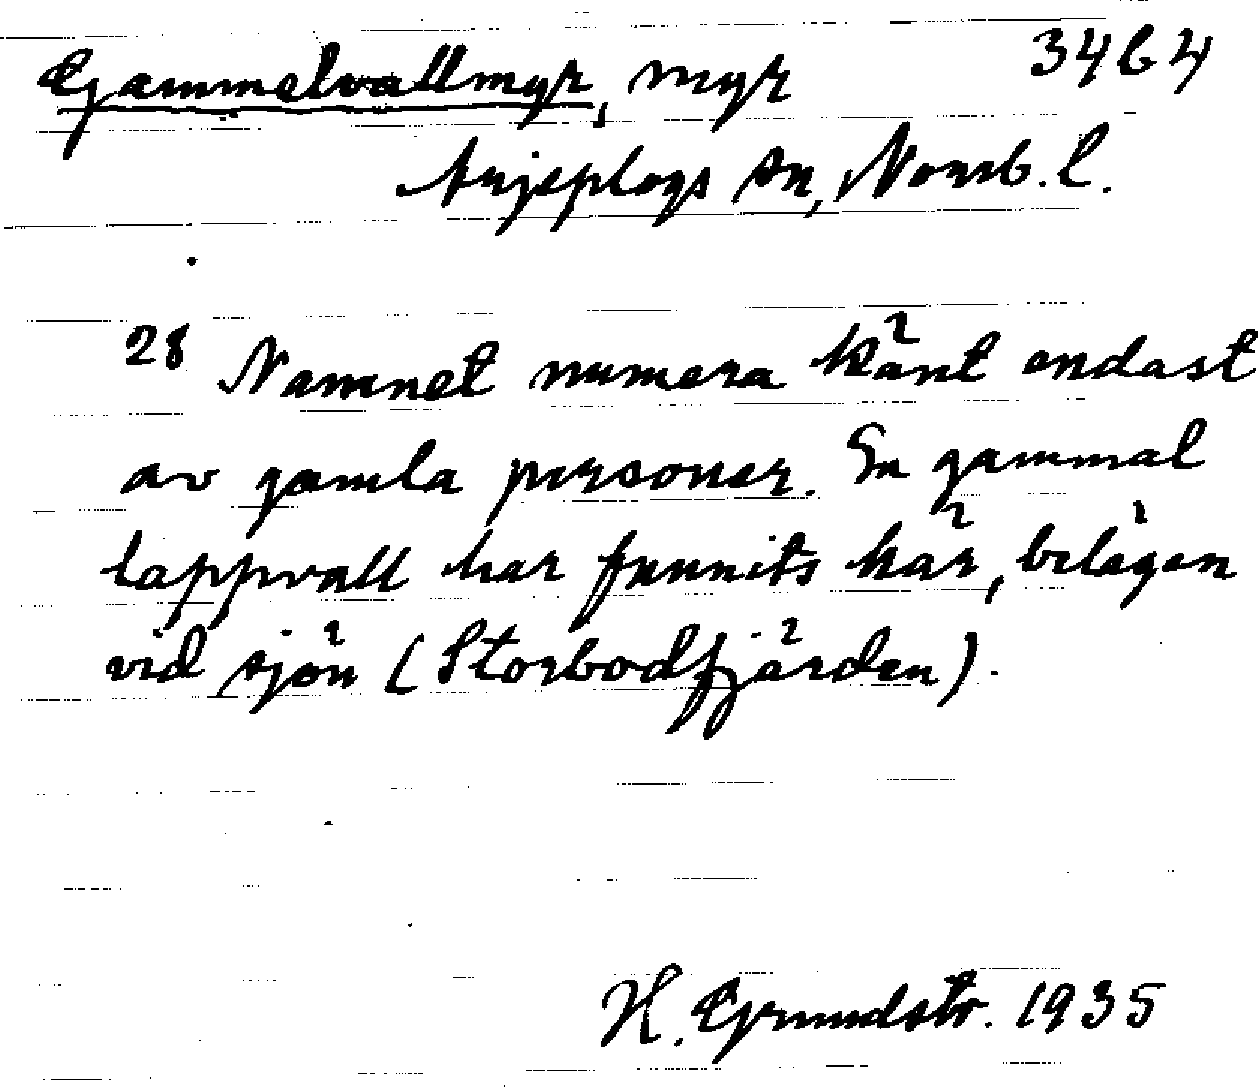 Gammelvallmyr, myr 3464
Arjeplogs sn, Norrb. l.
28 Namnet numera känt endast
av gamla personer. En gammal
lappvall har funnits här, belägen
vid sjön (Storbodfjärden).
H. Grundstr. 1935